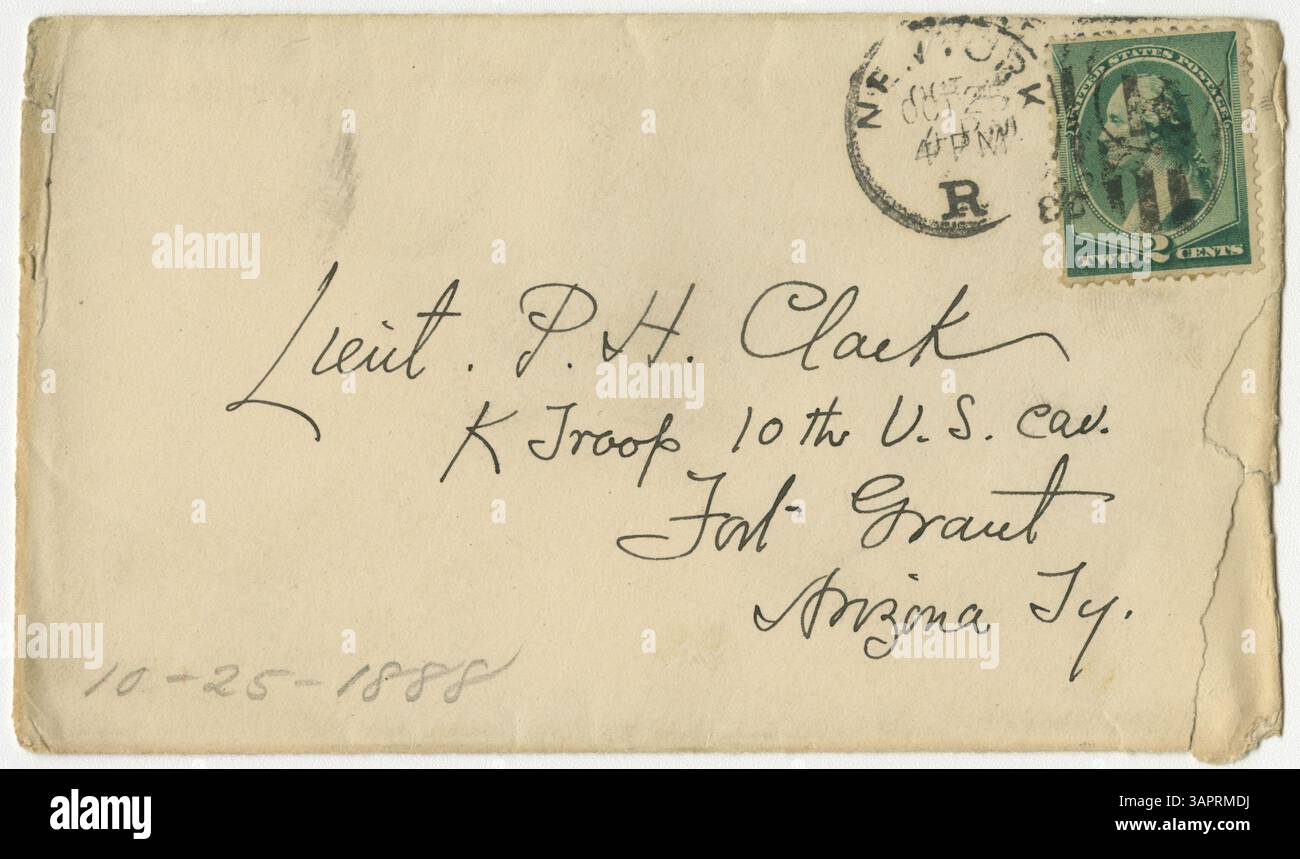 NEW YORK
OCT 25
4 PM
88
R
UNITED STATES POSTAGE
TWO 2 CENTS
Lieut. P. H. Clark
K Troop 10th U. S. Cav.
Fort Grant
Arizona Ty.
10-25-1888
alamy
Image ID: 3APRMDJ
www.alamy.com